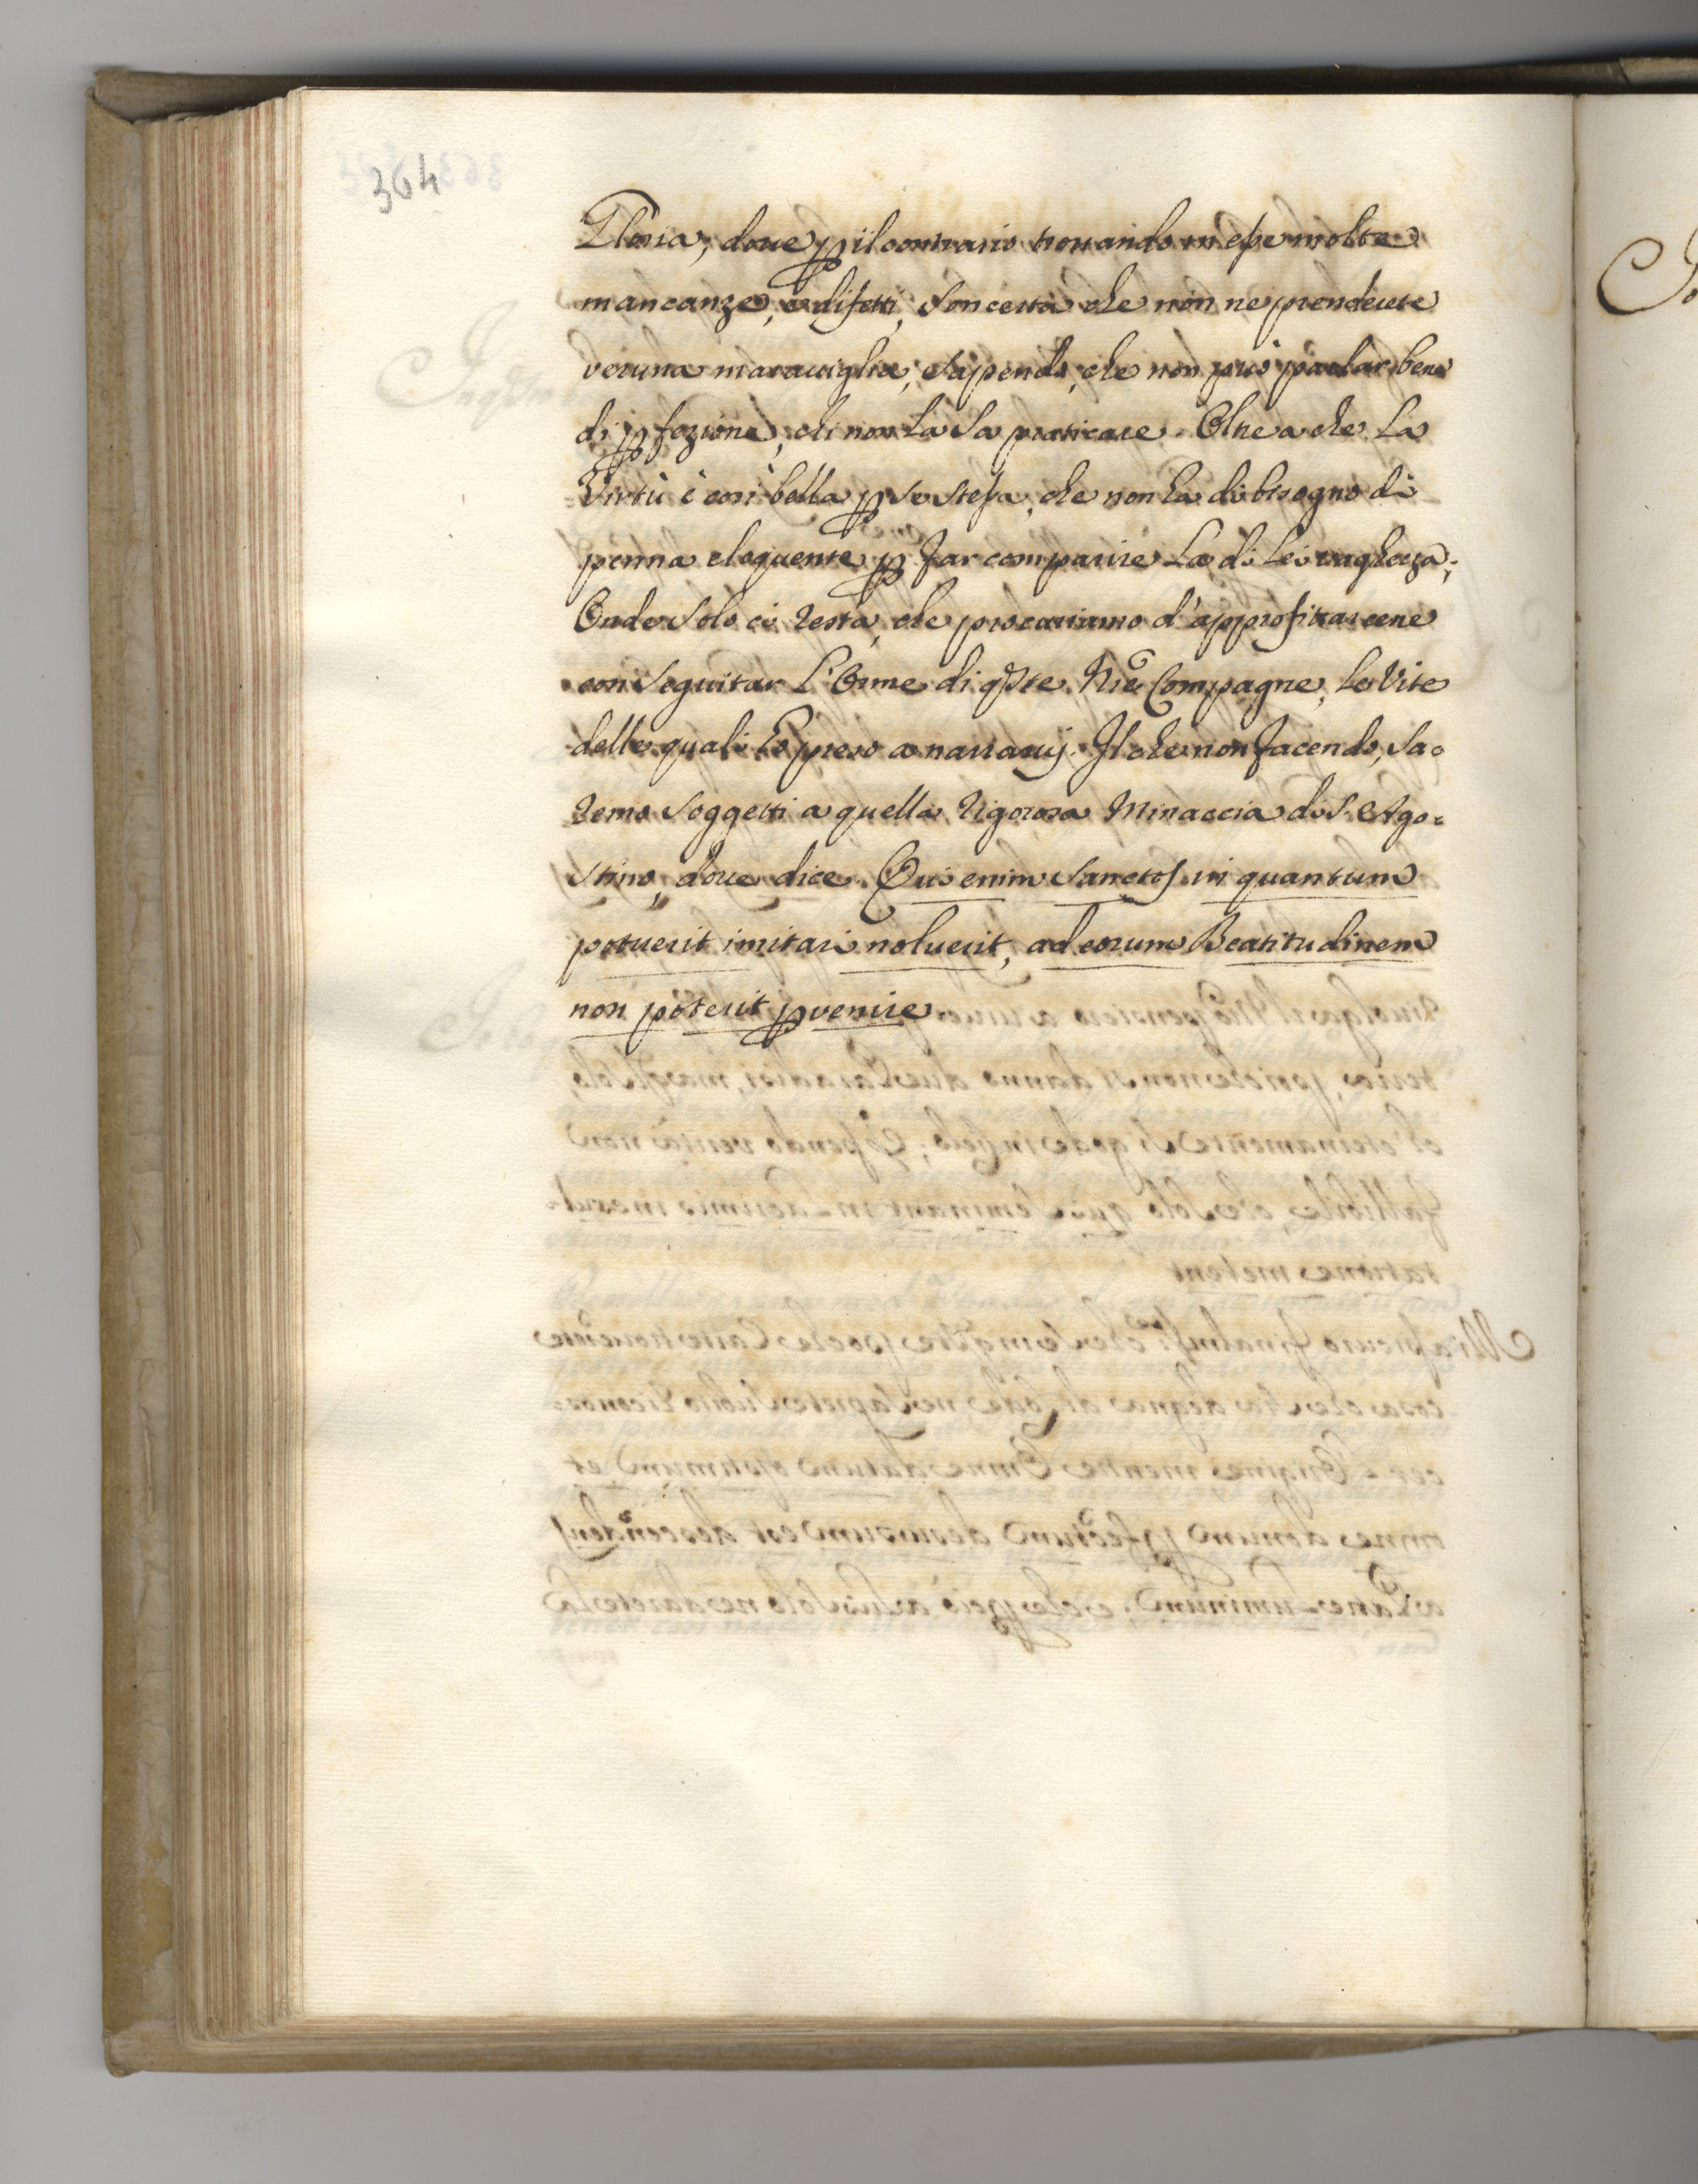 364
Gloria; doue p il contrario trouando in esse molte
mancanze, e difetti, son certa che non ne prenderete
veruna marauiglia; sapendo, che non può parlar bene
di pfezione, chi non la sa praticare. Oltre a che la
Virtù è così bella p se stessa, che non ha di bisogno di
penna eloquente p far comparire la di lei vaghezza;
Onde solo ci resta, che procuriamo d'approfittarcene
con seguitar l'Orme di qste Nre Compagne, le Vite
delle quali ho preso a narrarui. Il che non facendo, sa=
remo soggetti a quella rigorosa Minaccia di S. Ago=
stino, doue dice. Qui enim Sanctos in quantum
potuerit imitari noluerit, ad eorum Beatitudinem
non poterit pvenire